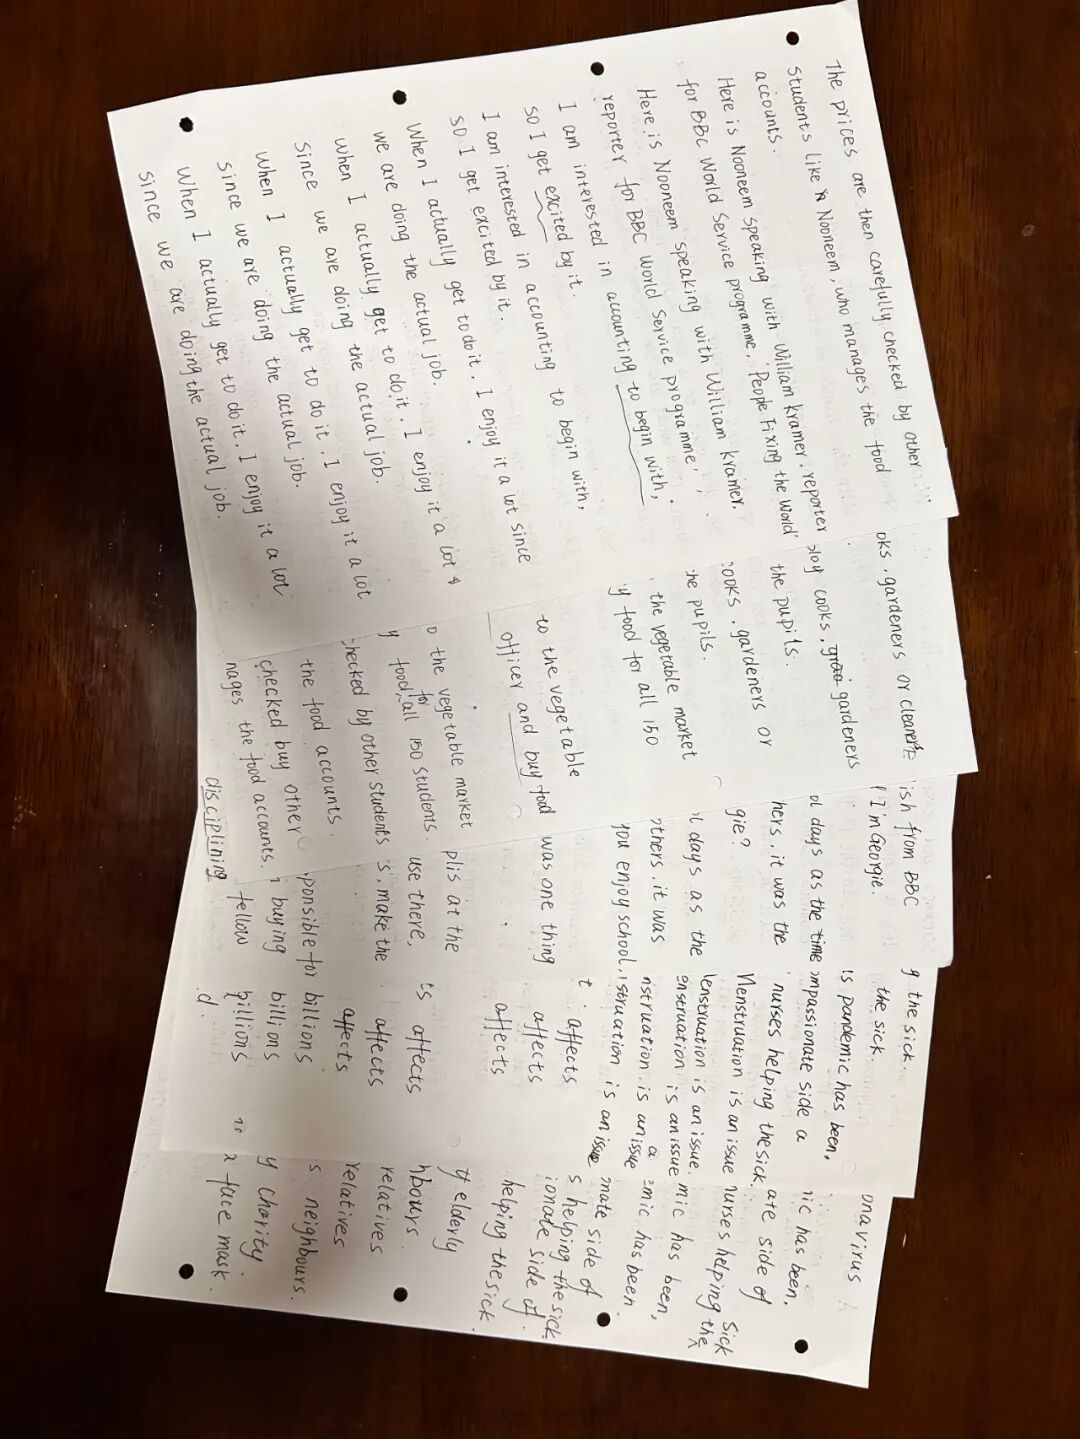 The prices are then carefully checked by other
students like Nooneem, who manages the food
accounts.
Here is Nooneem speaking with William Kramer, reporter
for BBC World Service programme, 'People Fixing the World'
Here is Nooneem speaking with William Kramer,
reporter for BBC World Service programme'
I am interested in accounting to begin with,
so I get excited by it.
I am interested in accounting to begin with,
so I get excited by it.
When I actually get to do it, I enjoy it a lot since
we are doing the actual job.
When I actually get to do it, I enjoy it a lot
since we are doing the actual job.
When I actually get to do it, I enjoy it a lot
since we are doing the actual job.
When I actually get to do it, I enjoy it a lot
since we are doing the actual job.
oks, gardeners or cleaners
ploy cooks, gardeners
the pupils.
cooks, gardeners or
he pupils.
the vegetable market
y food for all 150
to the vegetable
officer and buy food
o the vegetable market
y food for all 150 students.
checked by other students
the food accounts.
checked buy other
nages the food accounts.
ish from BBC
I'm Georgie.
ol days as the time
hers, it was the
gie?
l days as the
others, it was
you enjoy school,
was one thing
plis at the
use there,
s, make the
ponsible for
buying
fellow
disciplining
g the sick.
the sick.
s pandemic has been,
ompassionate side a
nurses helping the sick.
Menstruation is an issue
Menstruation is an issue.
enstruation is an issue
nstruation is an issue
struation is an issue
t. affects
affects
affects
ts affects
affects
affects
billions
billions
billions
d.
onavirus
ic has been,
ate side of
nurses helping the sick
mic has been,
emic has been
onate side of
s helping the sick
ionate side of
helping the sick.
y elderly
hbours
relatives
relatives
s neighbours.
y charity.
x face mask.